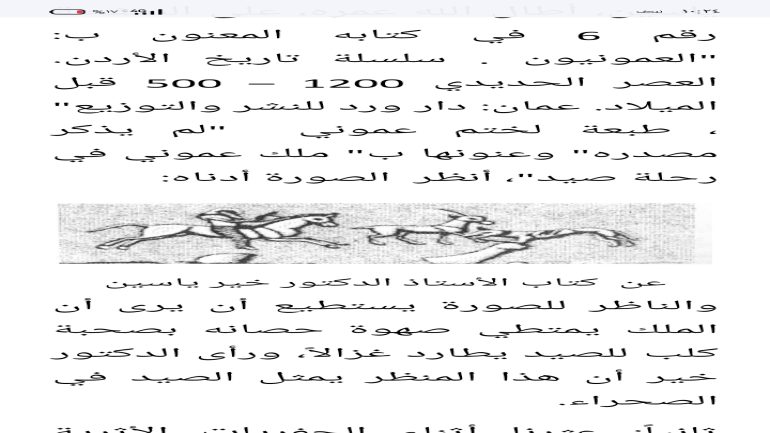 ١٠:٢٤
رقم 6 في كتابه المعنون ب:
"العمونيون . سلسلة تاريخ الأردن.
العصر الحديدي 1200 – 500 قبل
الميلاد. عمان: دار ورد للنشر والتوزيع"
، طبعة لختم عموني "لم يذكر
مصدره" وعنونها ب" ملك عموني في
رحلة صيد"، أنظر الصورة أدناه:
عن كتاب الأستاذ الدكتور خير ياسين
والناظر للصورة يستطيع أن يرى أن
الملك يمتطي صهوة حصانه بصحبة
كلب للصيد يطارد غزالاً، ورأى الدكتور
خير أن هذا المنظر يمثل الصيد في
الصحراء.